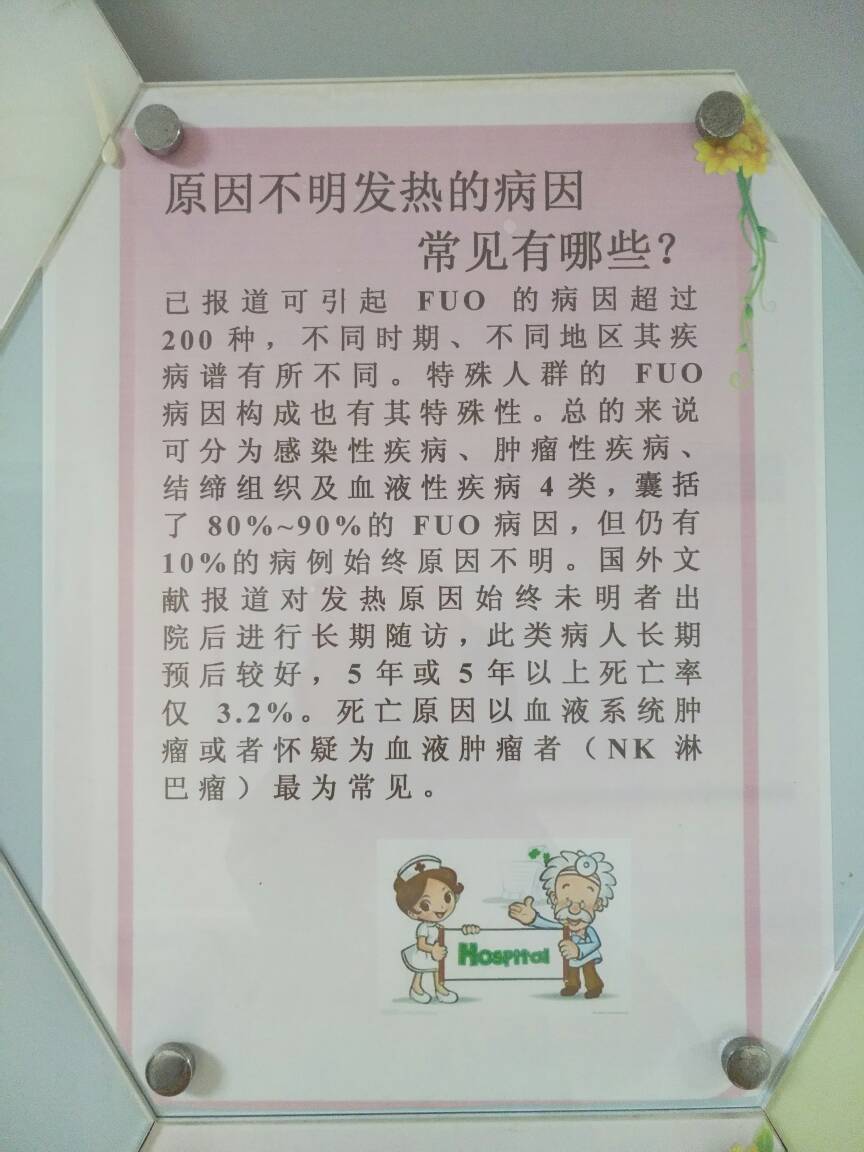 原因不明发热的病因
常见有哪些？
已报道可引起 FUO 的病因超过
200 种，不同时期、不同地区其疾
病谱有所不同。特殊人群的 FUO
病因构成也有其特殊性。总的来说
可分为感染性疾病、肿瘤性疾病、
结缔组织及血液性疾病 4 类，囊括
了 80%~90%的 FUO 病因，但仍有
10%的病例始终原因不明。国外文
献报道对发热原因始终未明者出
院后进行长期随访，此类病人长期
预后较好，5 年或 5 年以上死亡率
仅 3.2%。死亡原因以血液系统肿
瘤或者怀疑为血液肿瘤者（NK 淋
巴瘤）最为常见。
Hospital